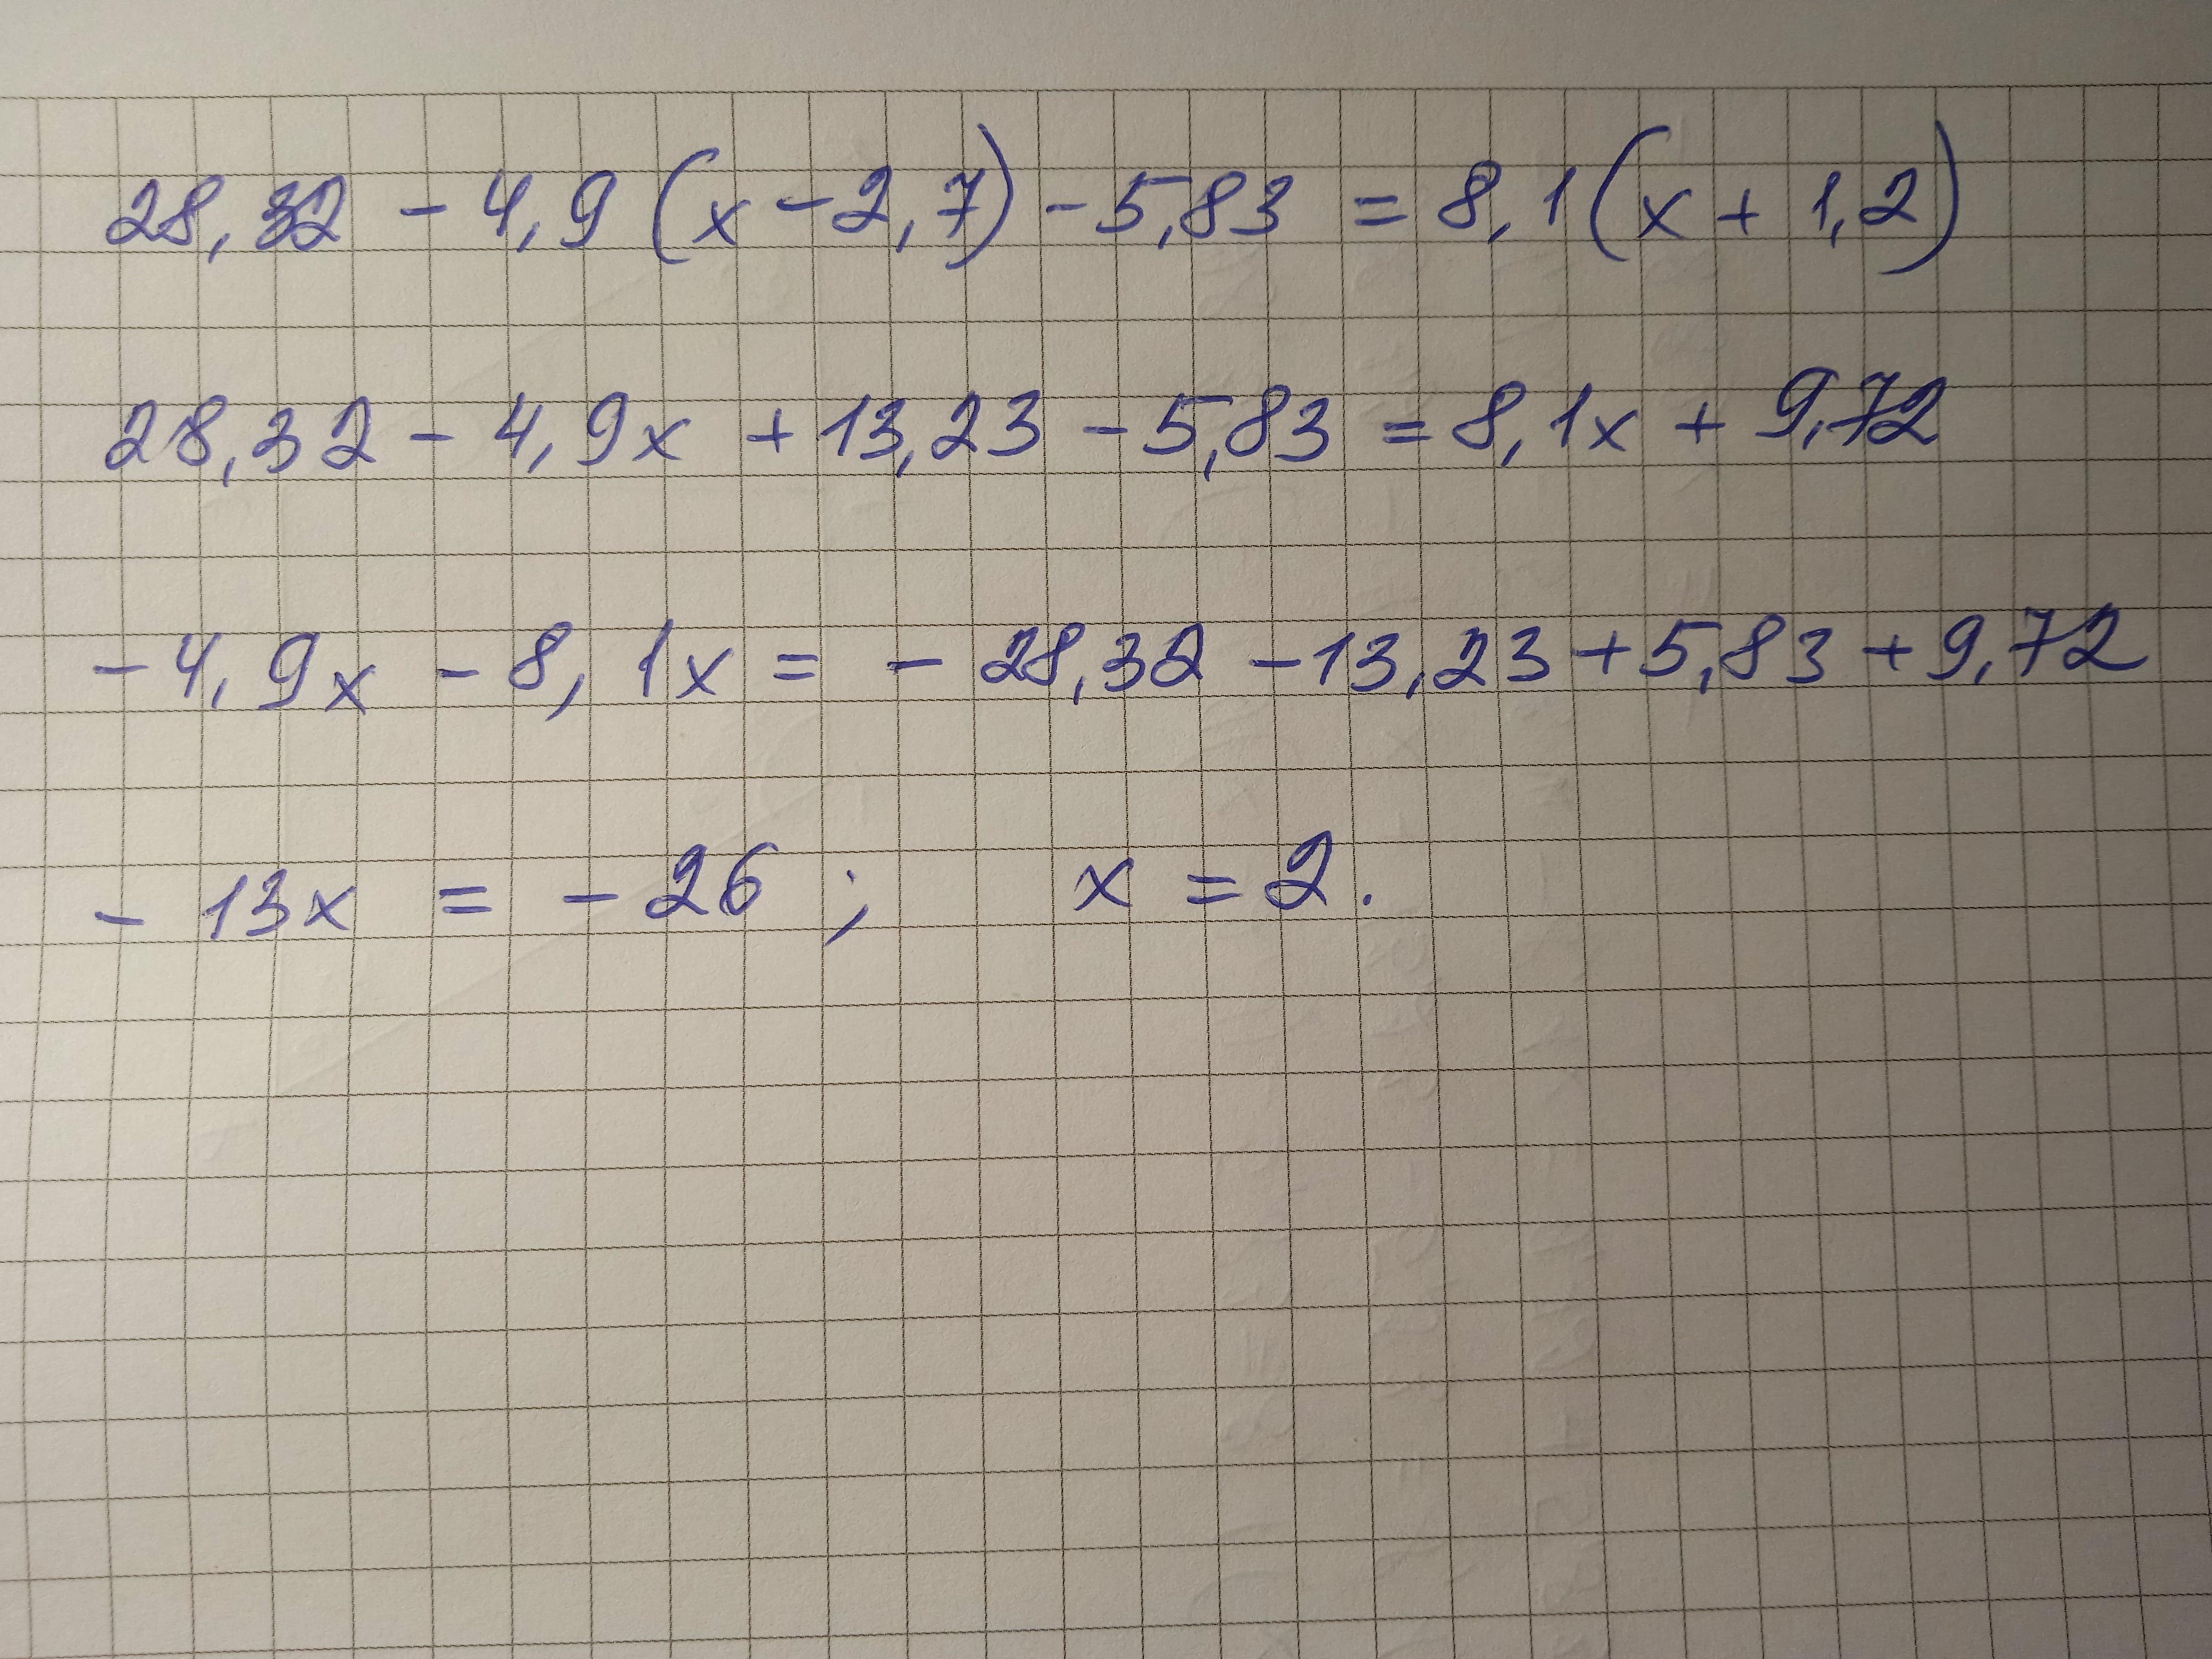 28,32 - 4,9 (x - 2,7) - 5,83 = 8,1 (x + 1,2)
28,32 - 4,9x + 13,23 - 5,83 = 8,1x + 9,72
- 4,9x - 8,1x = - 28,32 - 13,23 + 5,83 + 9,72
- 13x = - 26 ; x = 2.